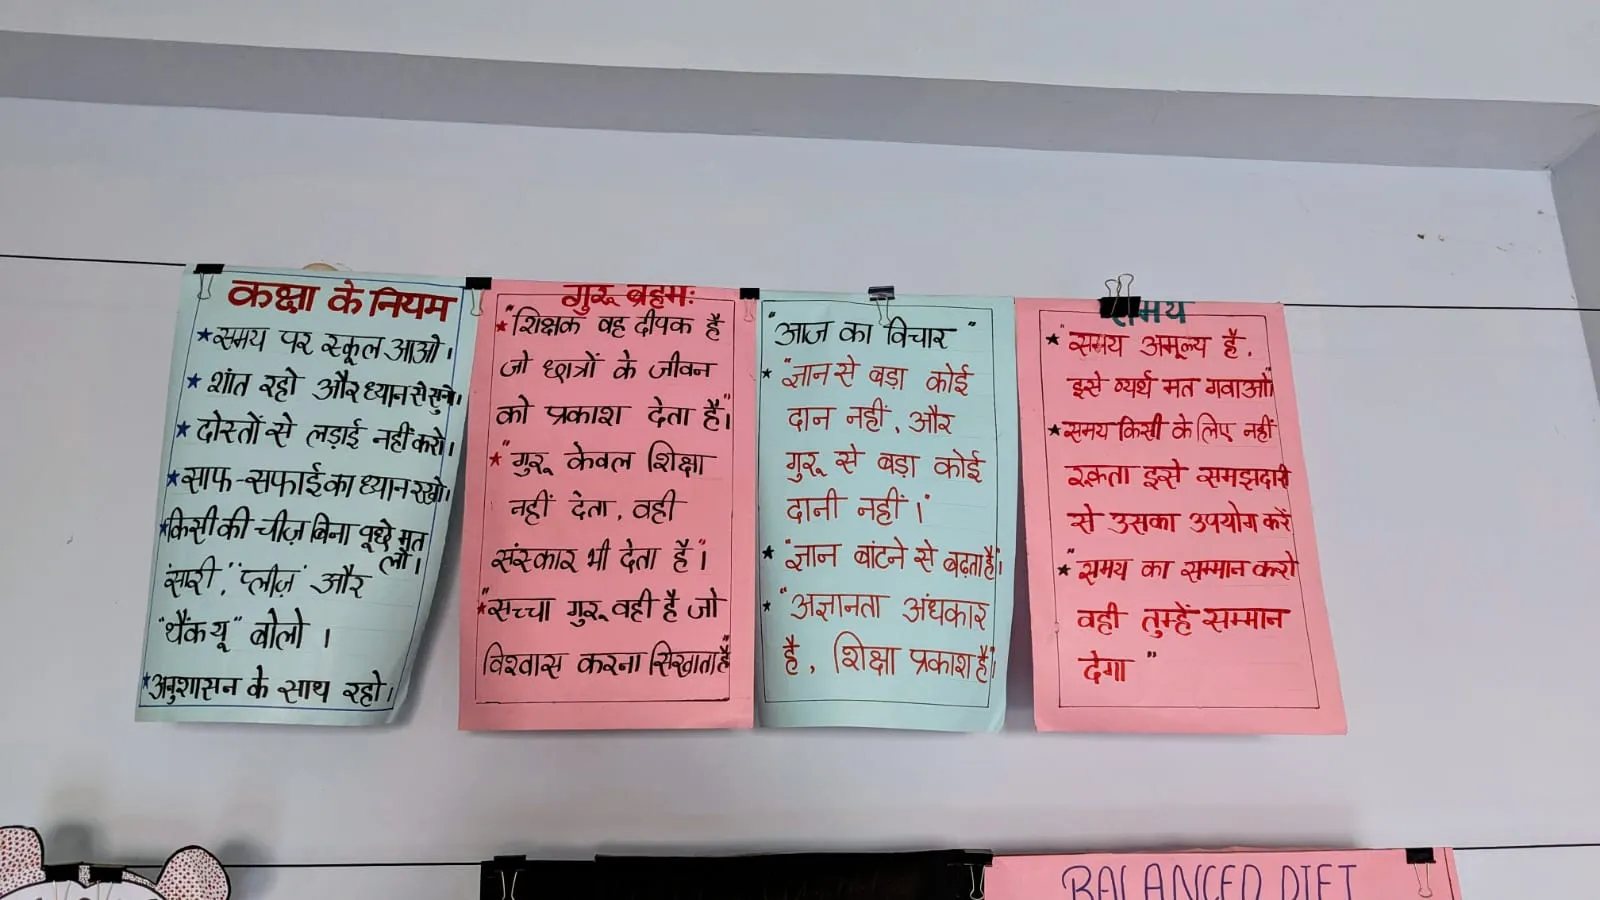 कक्षा के नियम
★ समय पर स्कूल आओ।
★ शांत रहो और ध्यान से सुनो।
★ दोस्तों से लड़ाई नहीं करो।
★ साफ-सफाई का ध्यान रखो।
★ किसी की चीज़ बिना पूछे मत लो।
'सारी', 'प्लीज़' और
"थैंक यू" बोलो ।
★ अनुशासन के साथ रहो।
गुरू ब्रहम:
★ "शिक्षक वह दीपक है
जो छात्रों के जीवन
को प्रकाश देता है।"
★ "गुरू केवल शिक्षा
नहीं देता, वही
संस्कार भी देता है"।
★ "सच्चा गुरू वही है जो
विश्वास करना सिखाता है"
"आज का विचार"
★ "ज्ञान से बड़ा कोई
दान नहीं, और
गुरू से बड़ा कोई
दानी नहीं।"
★ "ज्ञान बांटने से बढ़ता है।"
★ "अज्ञानता अंधकार
है, शिक्षा प्रकाश है"।
समय
★ "समय अमूल्य है,
इसे व्यर्थ मत गवाओ"
★ समय किसी के लिए नहीं
रुकता इसे समझदारी
से उसका उपयोग करें
★ "समय का सम्मान करो
वही तुम्हें सम्मान
देगा"
BALANCED DIET